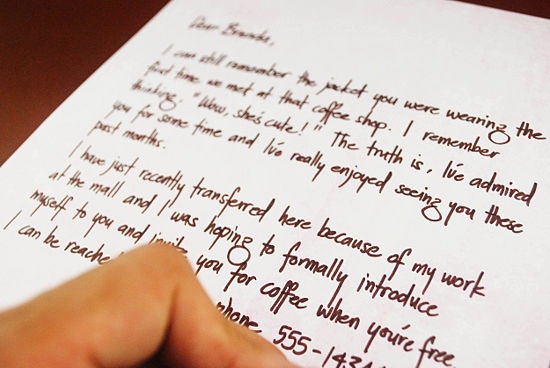 Dear
I can still remember the jacket you were wearing the
first time we met at that coffee shop. I remember
thinking, "Wow, she's cute!" The truth is, I've admired
you for some time and I've really enjoyed seeing you these
past months.
I have just recently transferred here because of my work
at the mall and I was hoping to formally introduce
myself to you and invite you for coffee when you're free.
I can be phone 555-143